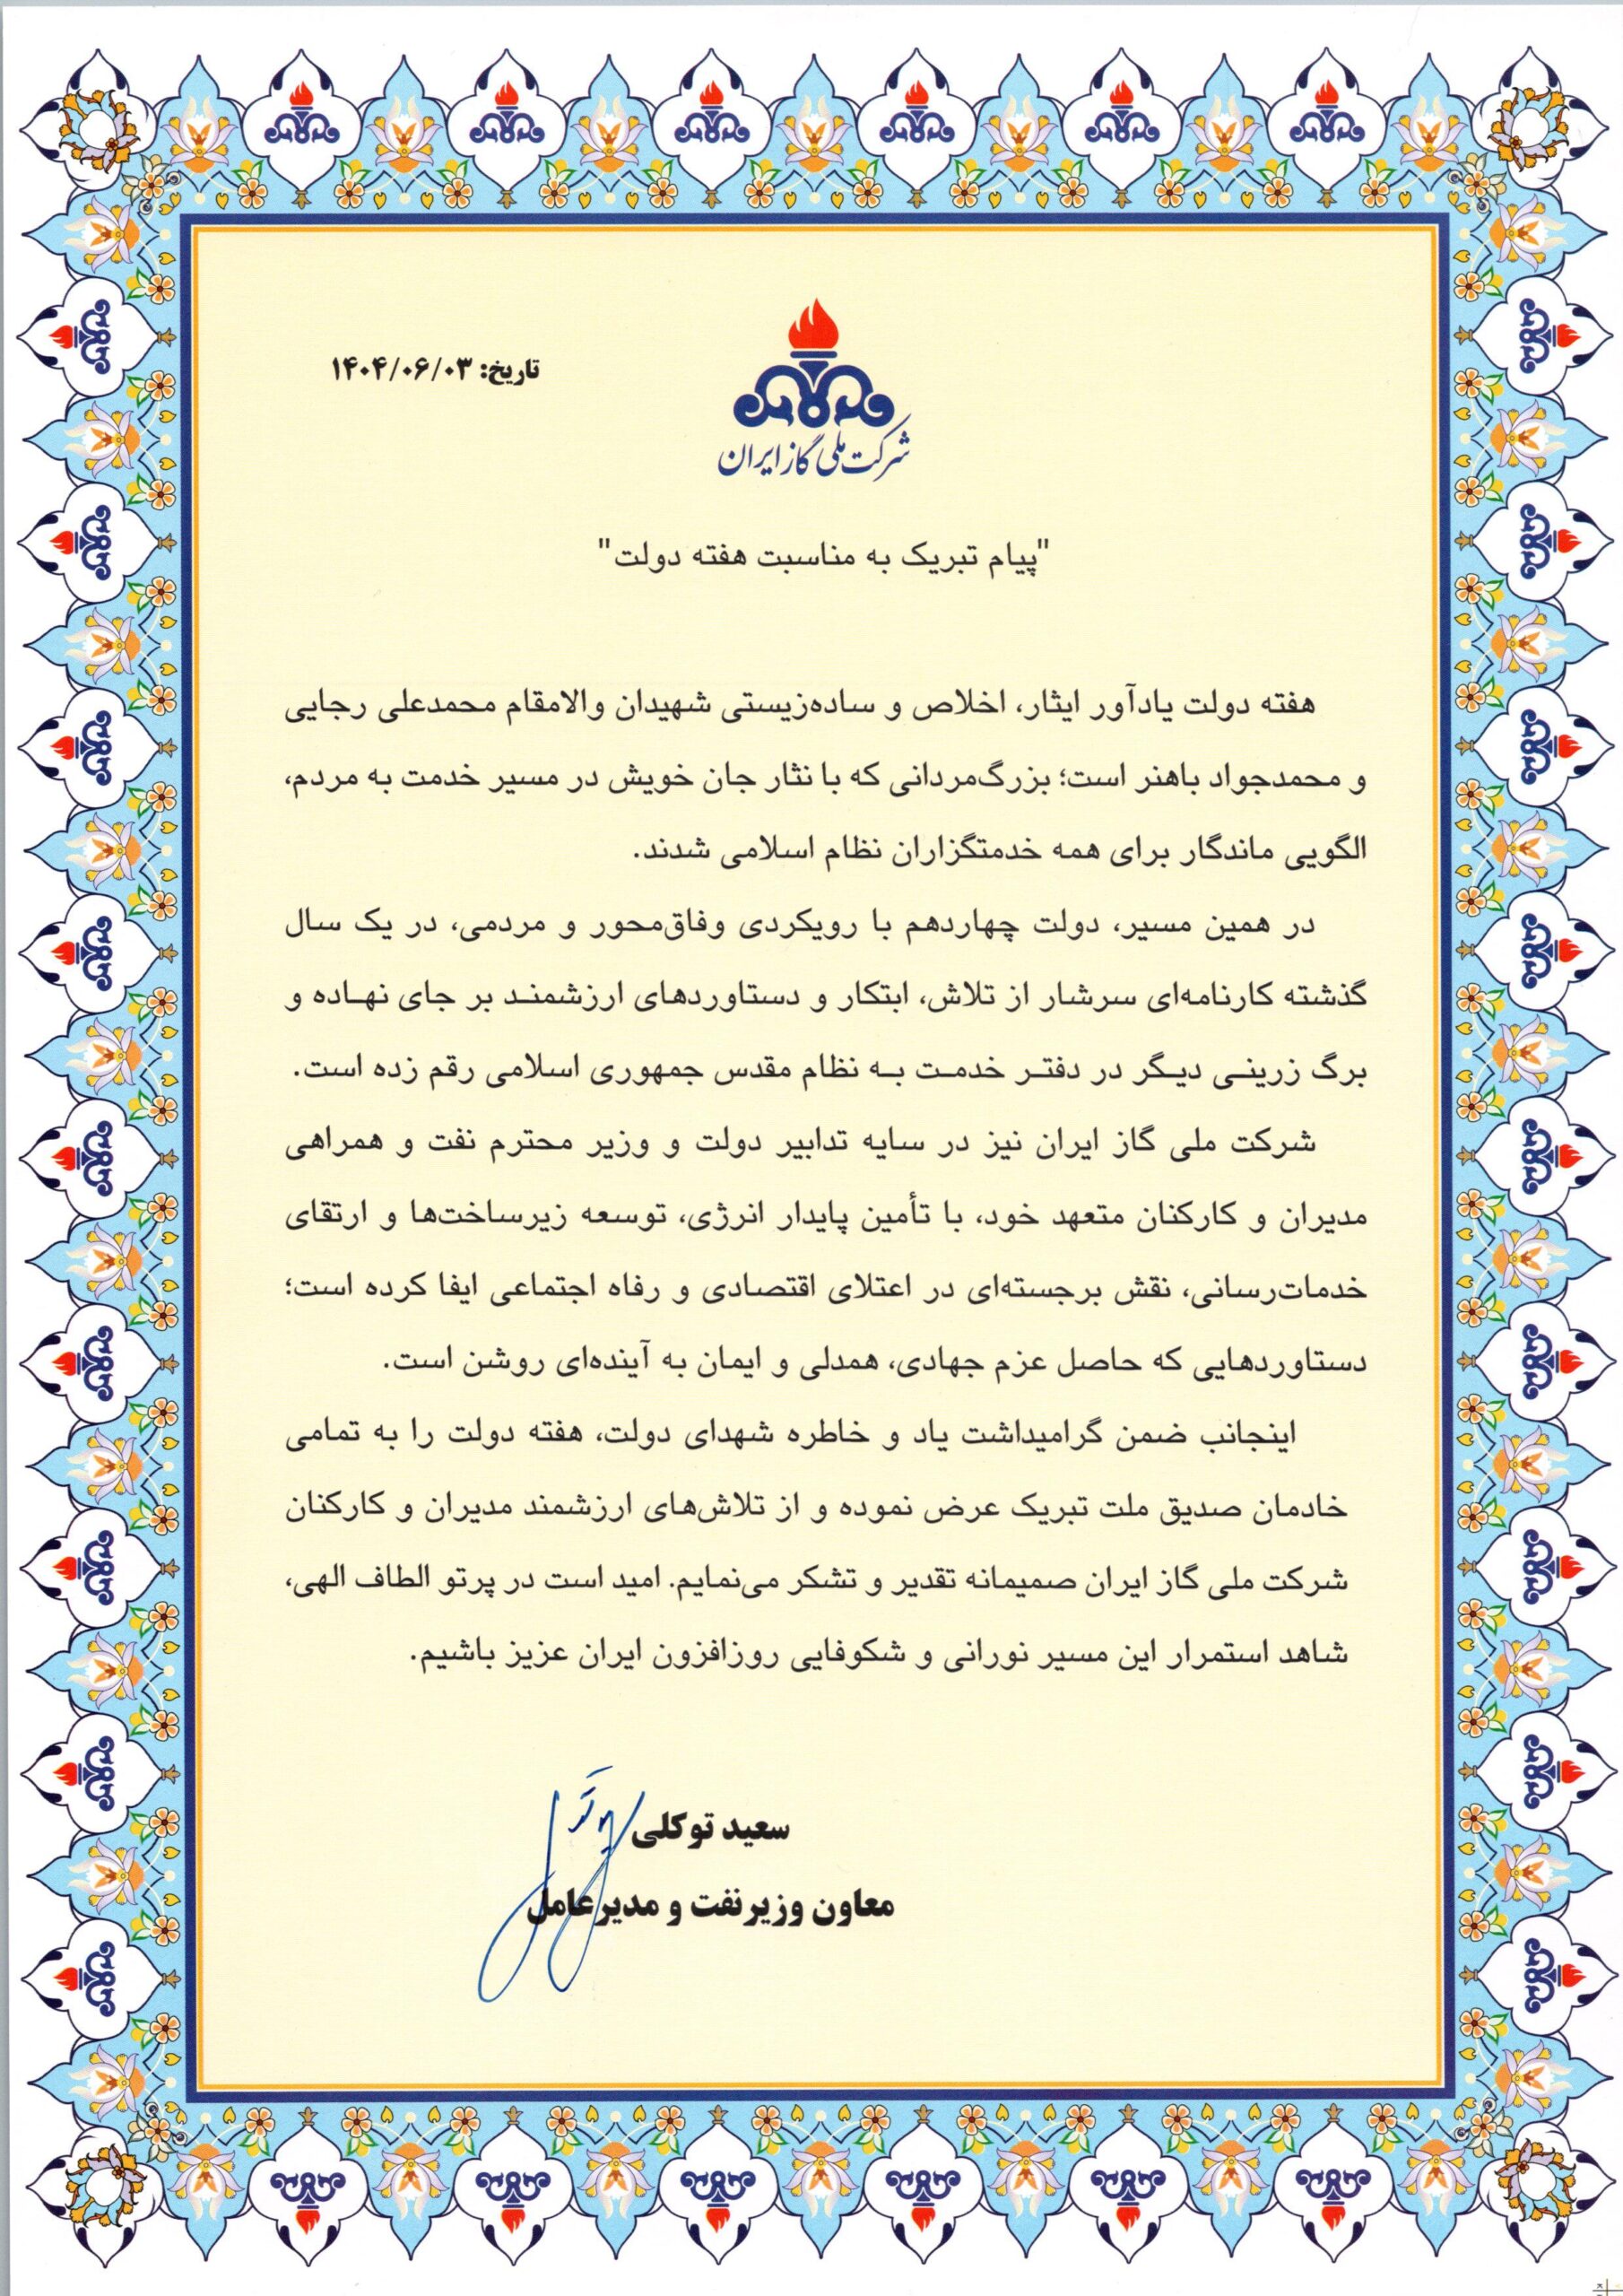 شرکت ملی گاز ایران
تاریخ: ۱۴۰۴/۰۶/۰۳
"پیام تبریک به مناسبت هفته دولت"
هفته دولت یادآور ایثار، اخلاص و ساده‌زیستی شهیدان والامقام محمدعلی رجایی
و محمدجواد باهنر است؛ بزرگ‌مردانی که با نثار جان خویش در مسیر خدمت به مردم،
الگویی ماندگار برای همه خدمتگزاران نظام اسلامی شدند.
در همین مسیر، دولت چهاردهم با رویکردی وفاق‌محور و مردمی، در یک سال
گذشته کارنامه‌ای سرشار از تلاش، ابتکار و دستاوردهای ارزشمنـد بر جای نهـاده و
برگ زرینـی دیـگر در دفتـر خدمـت بـه نظام مقدس جمهوری اسلامی رقم زده است.
شرکت ملی گاز ایران نیز در سایه تدابیر دولت و وزیر محترم نفت و همراهی
مدیران و کارکنان متعهد خود، با تأمین پایدار انرژی، توسعه زیرساخت‌ها و ارتقای
خدمات‌رسانی، نقش برجسته‌ای در اعتلای اقتصادی و رفاه اجتماعی ایفا کرده است؛
دستاوردهایی که حاصل عزم جهادی، همدلی و ایمان به آینده‌ای روشن است.
اینجانب ضمن گرامیداشت یاد و خاطره شهدای دولت، هفته دولت را به تمامی
خادمان صدیق ملت تبریک عرض نموده و از تلاش‌های ارزشمند مدیران و کارکنان
شرکت ملی گاز ایران صمیمانه تقدیر و تشکر می‌نمایم. امید است در پرتو الطاف الهی،
شاهد استمرار این مسیر نورانی و شکوفایی روزافزون ایران عزیز باشیم.
سعید توکلی
معاون وزیرنفت و مدیرعامل